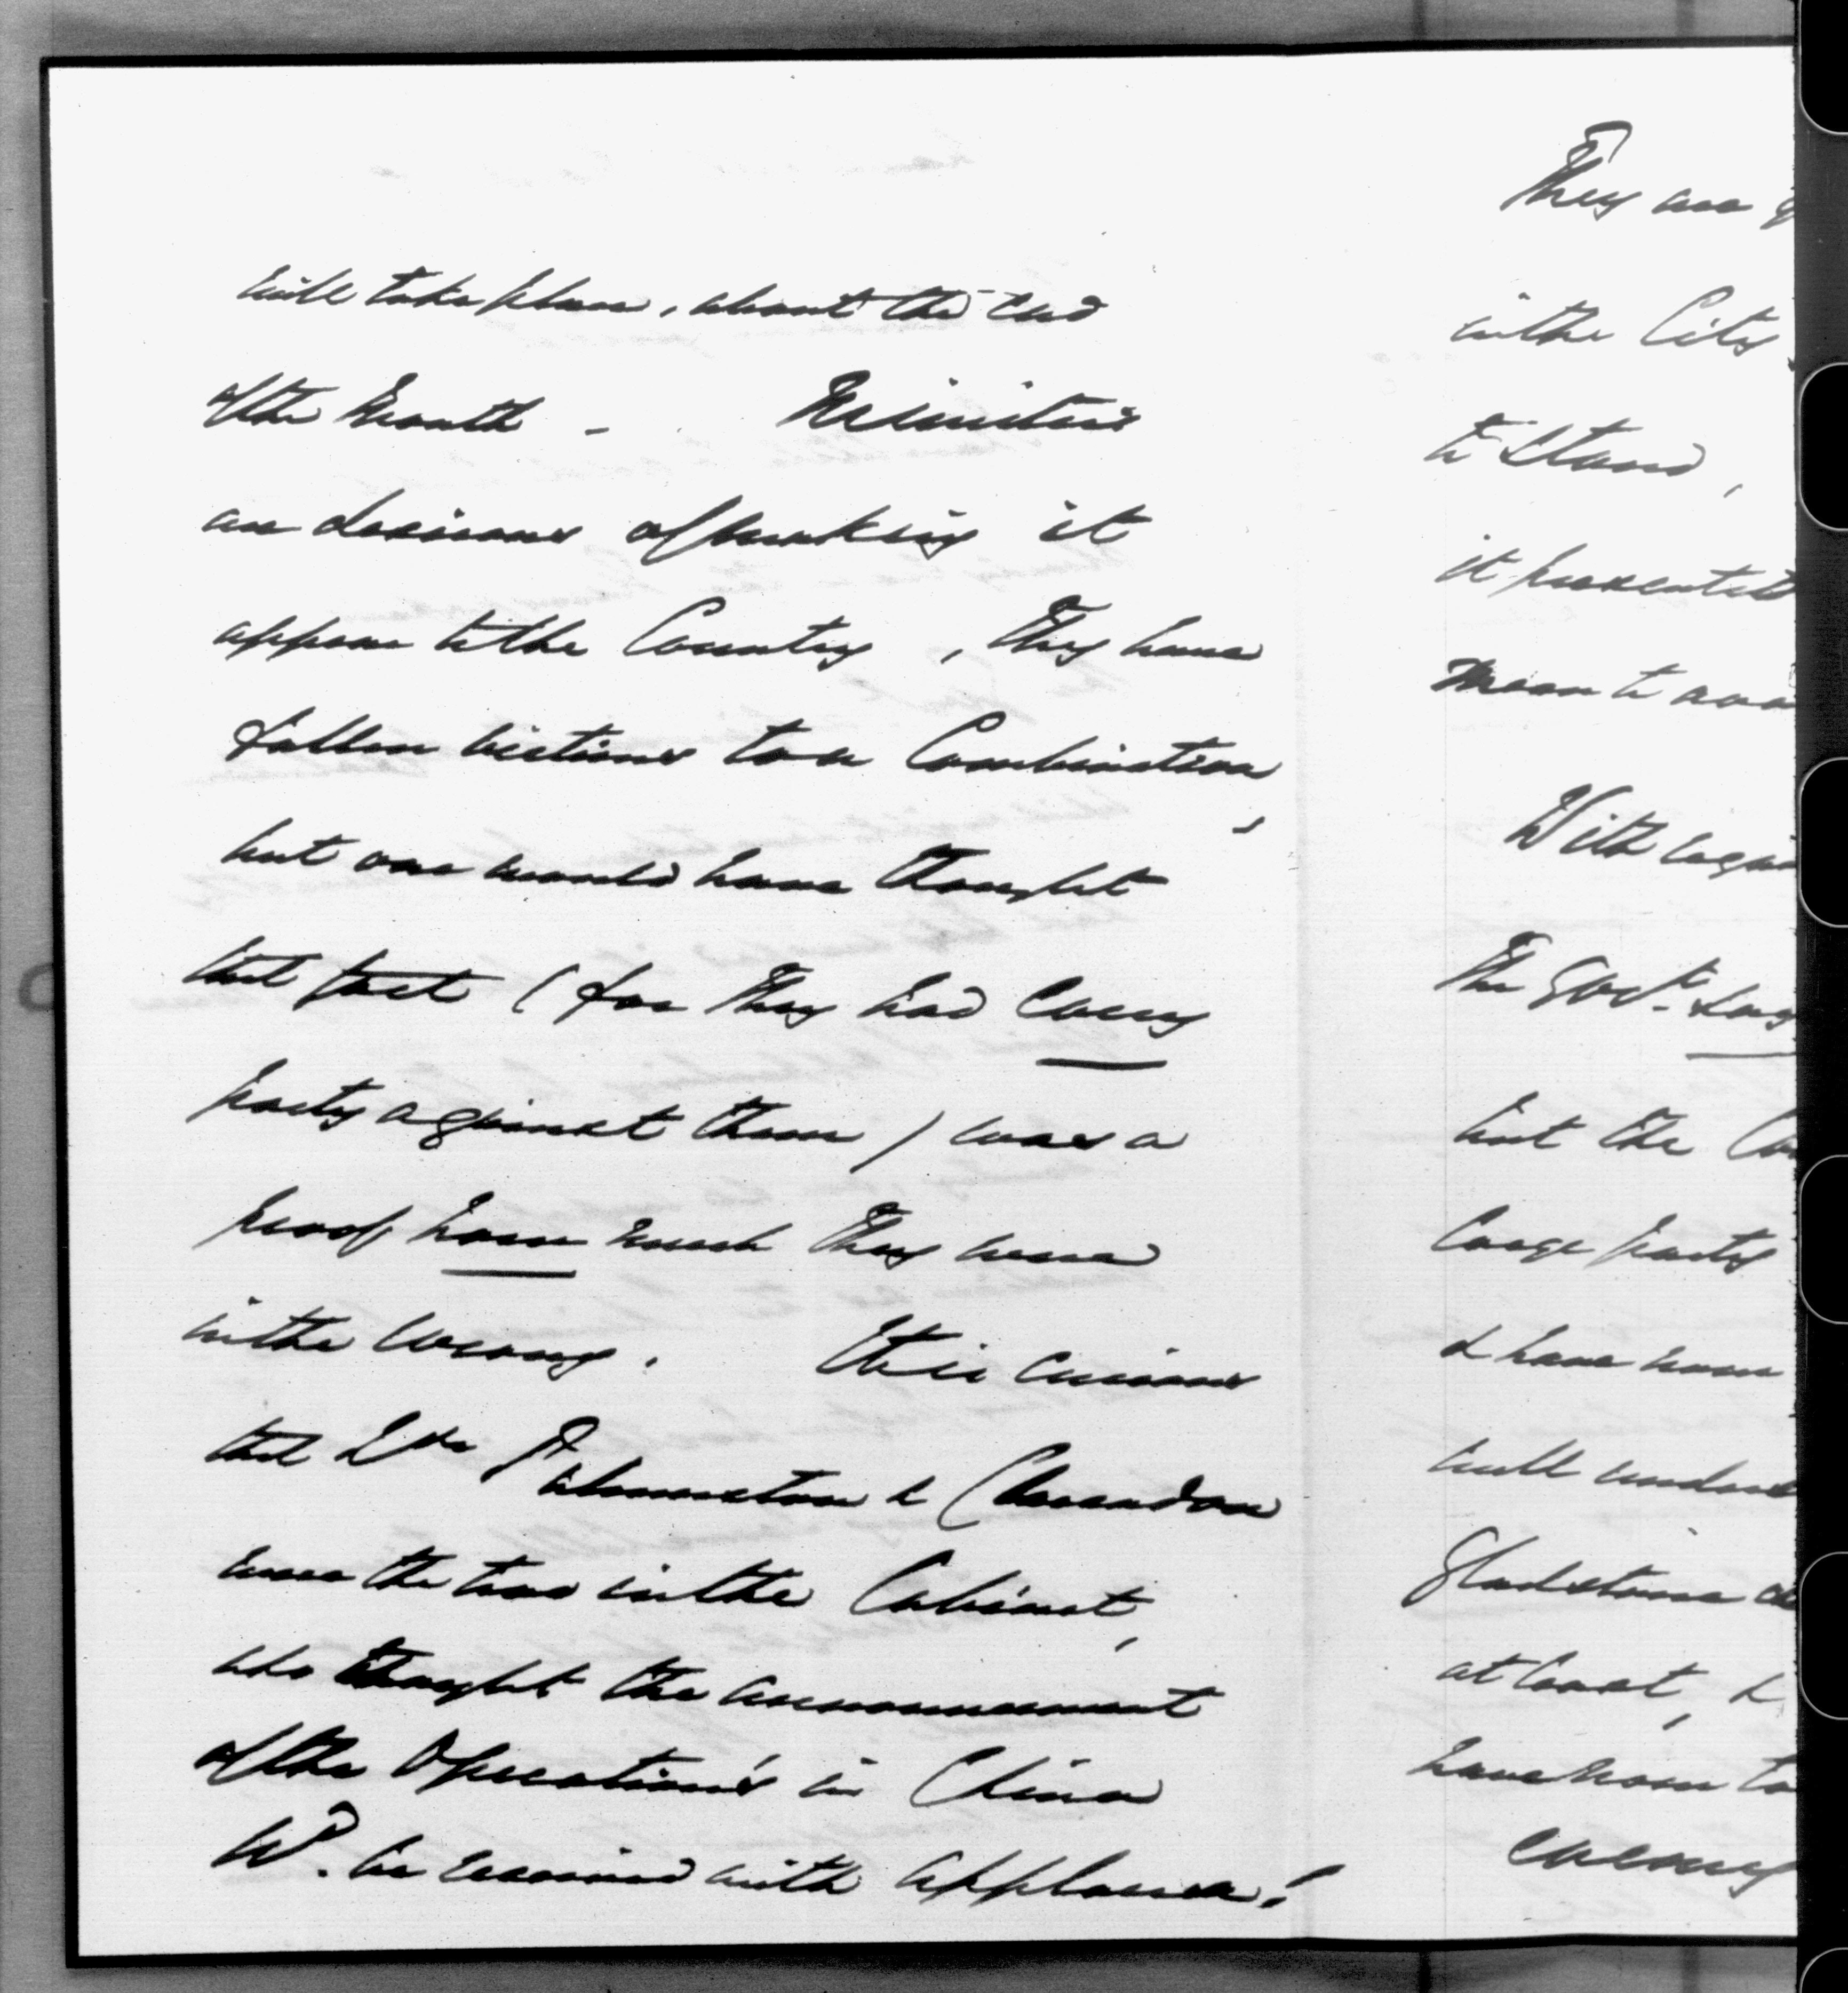 will take place, about the end
of the Month - Ministers
are desirous of making it
appear to the Country, They have
fallen victims to a Combination,
but one would have thought
that fact (for They had every
party against them) was a
proof how much They were
in the wrong. 'tis curious
that Lds Palmerston & Clarendon
were the two in the Cabinet,
who thought the announcement
of the Operations in China
Wd. be received with applause!
They are
in the City
to Stand,
it prevented
mean to
With
The Govt.
but the
large party
& have now
will
Gladstone
at least, &
have now to